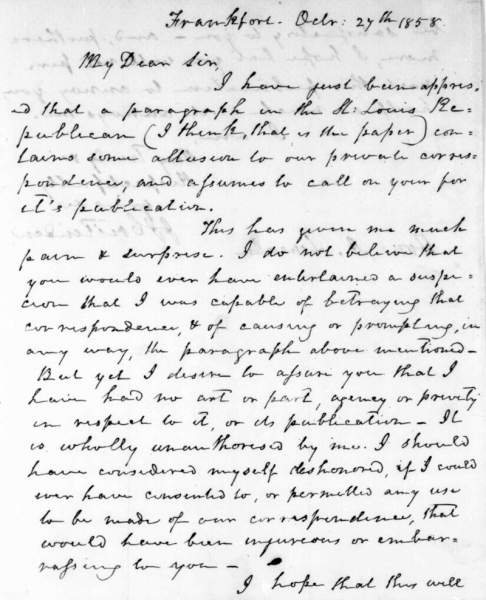 Frankfort. Octr: 27th 1858
My Dear Sir,
I have just been appris-
ed that a paragraph in the St. Louis Re-
publican (I think, that is the paper) con-
tains some allusion to our private corres-
pondence, and assumes to call on you for
it's publication.
This has given me much
pain & surprise. I do not believe that
you would ever have entertained a suspi-
cion that I was capable of betraying that
correspondence, & of causing or prompting, in
any way, the paragraph above mentioned -
But yet I desire to assure you that I
have had no art or part, agency or privity
in respect to it, or its publication - It
is wholly unauthorised by me. I should
have considered myself dishonored, if I could
ever have consented to, or permitted any use
to be made of our correspondence, that
would have been injureous or embar-
rassing to you -
I hope that this will